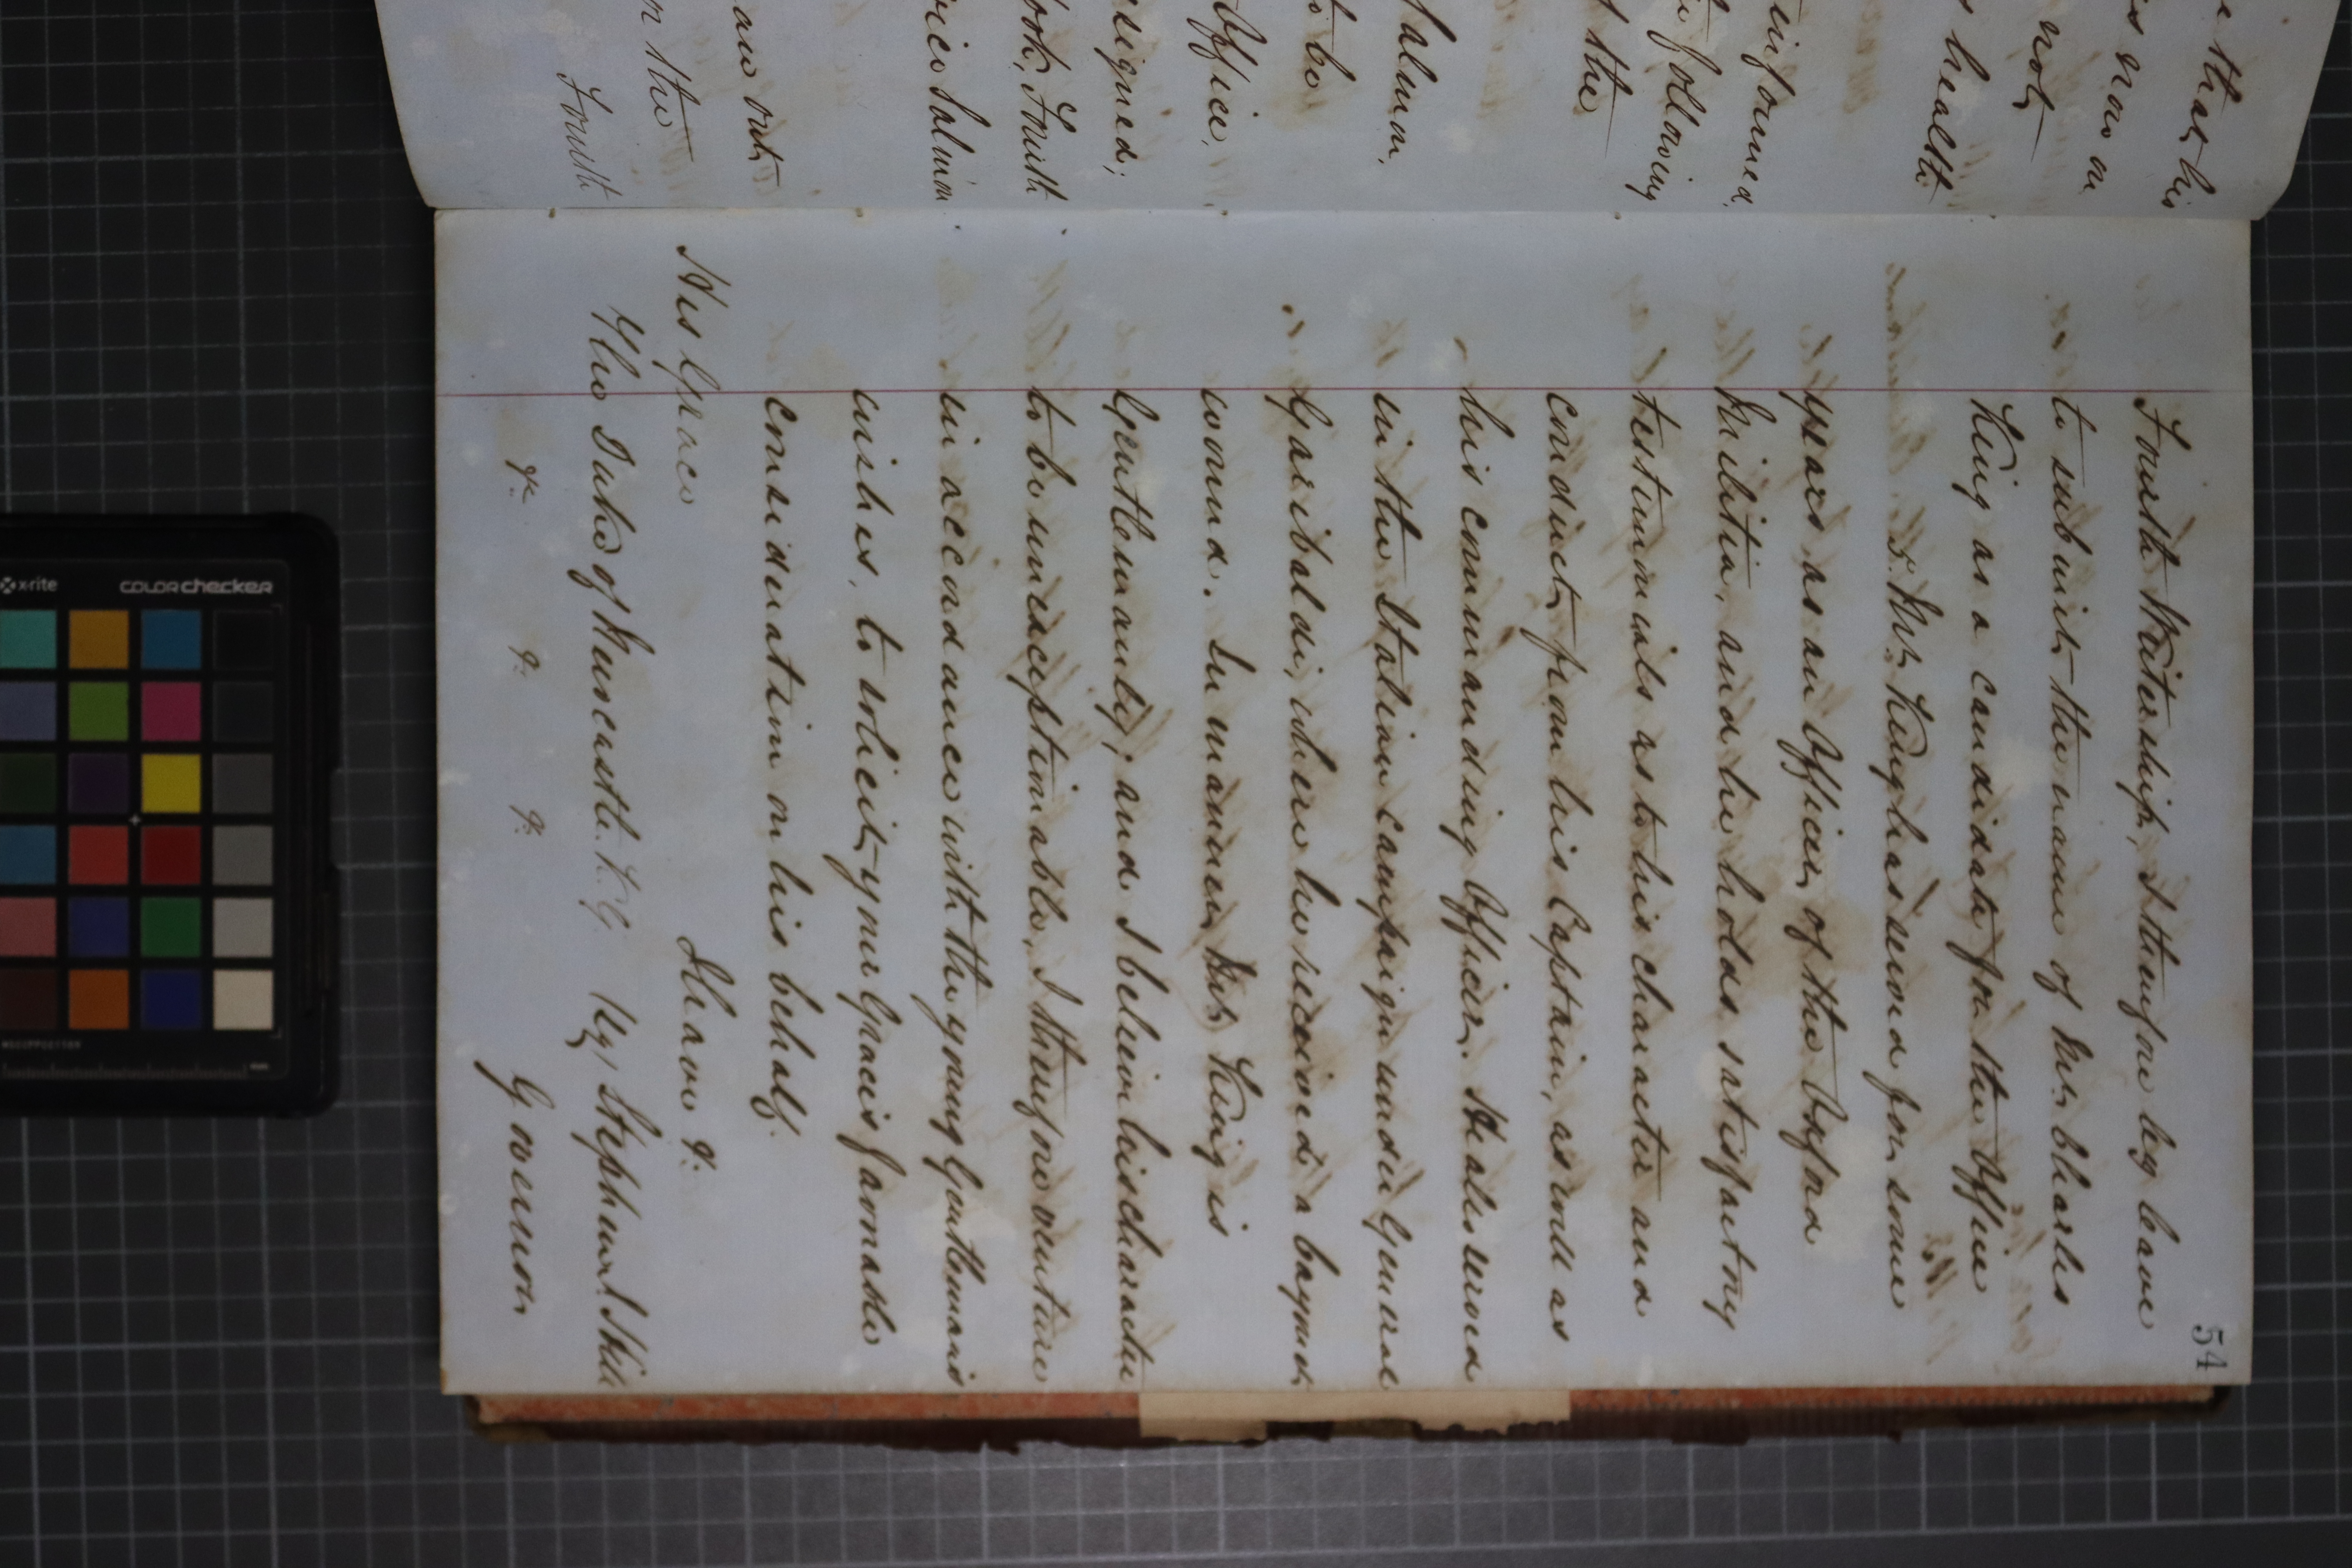 e that his
is now on
not
s health
informed,
e following
t the
Salmon,
to be
Office,
esigned;
ook, Fourth
vice Salmon
ave out
or the
Fourth
54
Fourth Writership, I therefore beg leave
to submit the name of Mr. Charles
King as a candidate for the Office
Mr. King has served for some
years as an Officer of the Oxford
Militia, and he holds satisfactory
testimonials as to his character and
conduct from his Captain, as well as
his commanding Officer. He also served
in the Italian campaign under General
Garibaldi, where he received a bayonet
wound. In manner Mr. King is
Gentlemanly, and I believe his character
to be unexceptionable, I therefore venture
in accordance with the young Gentleman's
wishes, to solicit your Grace's favorable
consideration on his behalf.
I have &c.
His Grace
The Duke of Newcastle. K.G.
Sir Stephen J. Hill
&c. &c. &c.
Governor
x-rite
colorchecker